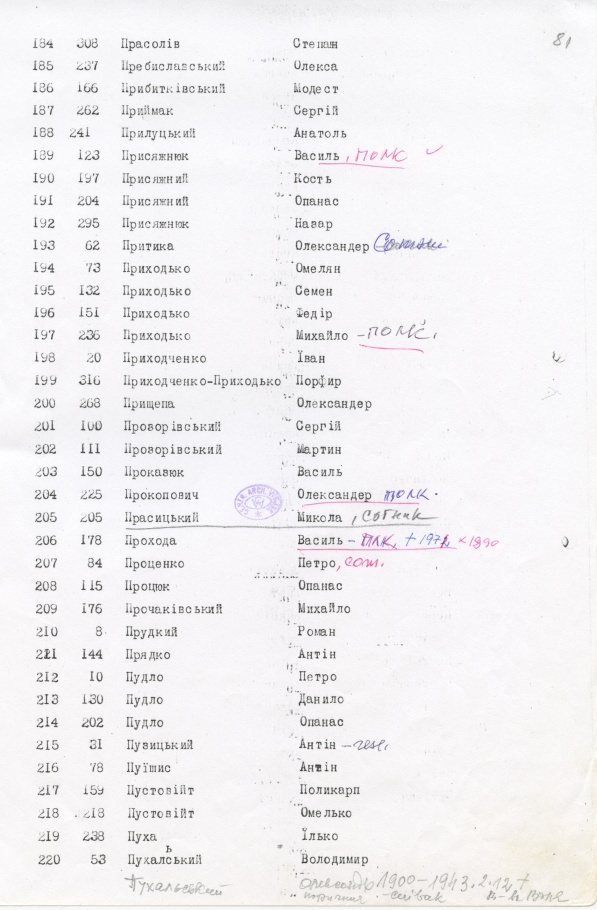 81
184 308 Прасолів Степан
185 237 Пребиславський Олекса
186 166 Прибитківський Модест
187 262 Приймак Сергій
188 241 Прилуцький Анатоль
189 123 Присяжнюк Василь, полк
190 197 Присяжний Кость
191 204 Присяжний Опанас
192 295 Присяжнюк Назар
193 62 Притика Олександер
194 73 Приходько Омелян
195 132 Приходько Семен
196 151 Приходько Федір
197 236 Приходько Михайло - полк.
198 20 Приходченко Іван
199 316 Приходченко-Приходько Порфир
200 268 Прищепа Олександер
201 100 Прозорівський Сергій
202 111 Прозорівський Мартин
203 150 Проказюк Василь
204 225 Прокопович Олександер полк.
205 205 Прасицький Микола, сотник
206 178 Прохода Василь - +1971, ×1890
207 84 Проценко Петро, сот.
208 115 Процюк Опанас
209 176 Прочаківський Михайло
210 8 Прудкий Роман
221 144 Прядко Антін
212 10 Пудло Петро
213 130 Пудло Данило
214 202 Пудло Опанас
215 31 Пузицький Антін -
216 78 Пуїшис Антін
217 159 Пустовійт Поликарп
218 218 Пустовійт Омелько
219 238 Пуха Їлько
ь
220 53 Пухалський Володимир
Пухальський Олександр 1900-1943.2.12.+
співак